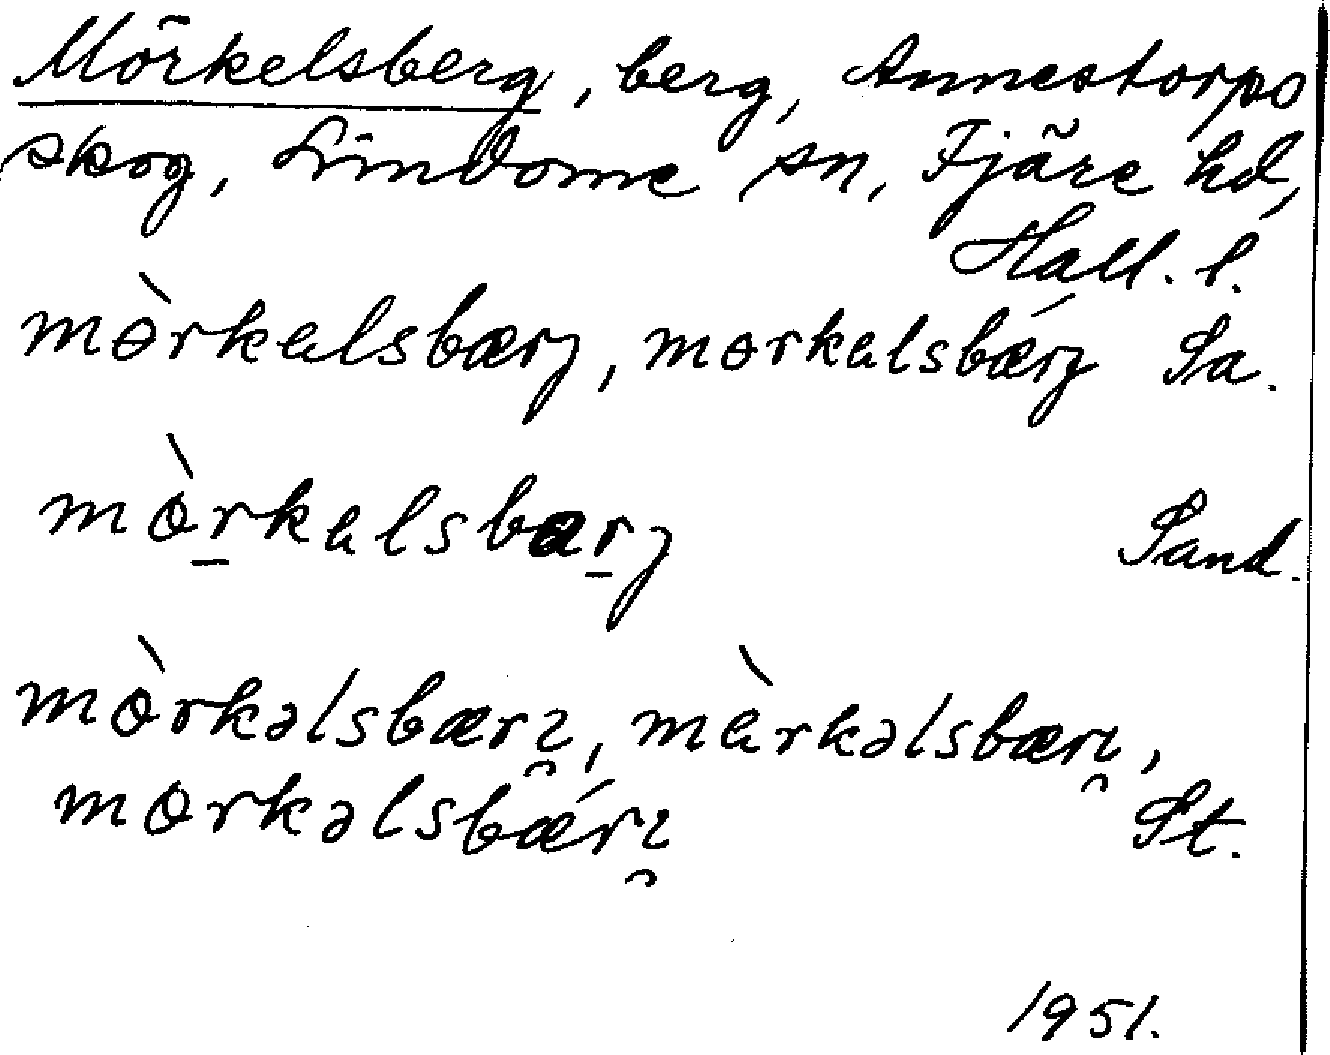 Mörkelsberg, berg, Annestorps
skog, Lindome sn, Fjäre hd,
Hall. l.
mòrkalsbærj, morkalsbǽrj Sa.
mòr̠kalsbar̠j Sand.
mòrkəlsbærı̯, màrkəlsbærı̯,
morkəlsbǽrı̯ St.
1951.